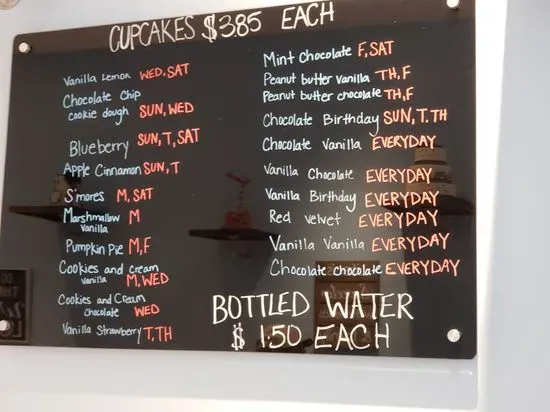 CUPCAKES $3.85 EACH
Vanilla Lemon WED, SAT
Chocolate Chip
cookie dough SUN, WED
Blueberry SUN, T, SAT
Apple Cinnamon SUN, T
S'mores M, SAT
Marshmallow M
Vanilla
Pumpkin Pie M, F
Cookies and cream
vanilla M, WED
Cookies and Cream
Chocolate WED
Vanilla Strawberry T, TH
Mint Chocolate F, SAT
Peanut butter vanilla TH, F
Peanut butter chocolate TH, F
Chocolate Birthday SUN, T, TH
Chocolate Vanilla EVERYDAY
Vanilla Chocolate EVERYDAY
Vanilla Birthday EVERYDAY
Red velvet EVERYDAY
Vanilla Vanilla EVERYDAY
Chocolate chocolate EVERYDAY
BOTTLED WATER
$ 1.50 EACH